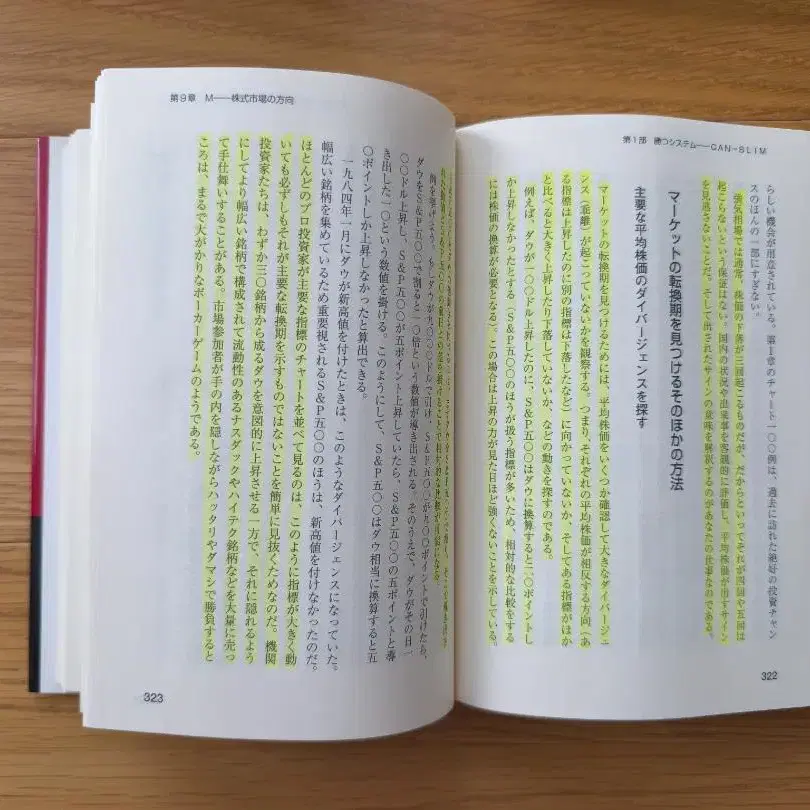 第1部 勝つシステム――CAN-SLIM
らしい機会が用意されている。第1章のチャート一〇〇例は、過去に訪れた絶好の投資チャン
スのほんの一部にすぎない。
強気相場では通常、株価の下落が三回起こるものだが、だからといってそれが四回や五回は
起こらないという保証はない。国内の状況や出来事を客観的に評価し、平均株価が出すサイン
を見逃さないことだ。そして出されたサインの意味を解釈するのがあなたの仕事なのである。
マーケットの転換期を見つけるそのほかの方法
主要な平均株価のダイバージェンスを探す
マーケットの転換期を見つけるためには、平均株価をいくつか確認して大きなダイバージェ
ンス（乖離）が起こっていないかを観察する。つまり、それぞれの平均株価が相反する方向（あ
る指標は上昇したのに別の指標は下落したなど）に向かっていないか、そしてある指標がほか
と比べると大きく上昇したり下落していないか、などの動きを探すのである。
例えば、ダウが一〇〇ドル上昇したのに、S&P五〇〇はダウに換算すると二〇ポイントし
か上昇しなかったとする（S&P五〇〇のほうが扱う指標が多いため、相対的な比較をする
には株価の換算が必要となる）。この場合は上昇の力が見た目ほど強くないことを示している。
322
第9章 M――株式市場の方向
例を挙げよう。もしダウが九〇〇〇ドルで引け、S&P五〇〇が九〇〇ポイントで引けたら、
ダウをS&P五〇〇で割ると一〇倍という数値が導き出される。そのうえで、ダウがその日一
〇〇ドル上昇し、S&P五〇〇が五ポイント上昇していたら、S&P五〇〇の五ポイントと導
き出した一〇という数値を掛ける。このようにして、S&P五〇〇はダウ相当に換算すると五
〇ポイントしか上昇しなかったと算出できる。
一九八四年一月にダウが新高値を付けたときは、このようなダイバージェンスになっていた。
幅広い銘柄を集めているため重要視されるS&P五〇〇のほうは、新高値を付けなかったのだ。
ほとんどのプロ投資家が主要な指標のチャートを並べて見るのは、このように指標が大きく動
いても必ずしもそれが主要な転換期を示すものではないことを簡単に見抜くためなのだ。機関
投資家たちは、わずか三〇銘柄から成るダウを意図的に上昇させる一方で、それに隠れるよう
にしてより幅広い銘柄で構成されて流動性のあるナスダックやハイテク銘柄などを大量に売っ
て手仕舞いすることがある。市場参加者が手の内を隠しながらハッタリやダマシで勝負すると
ころは、まるで大がかりなポーカーゲームのようである。
323